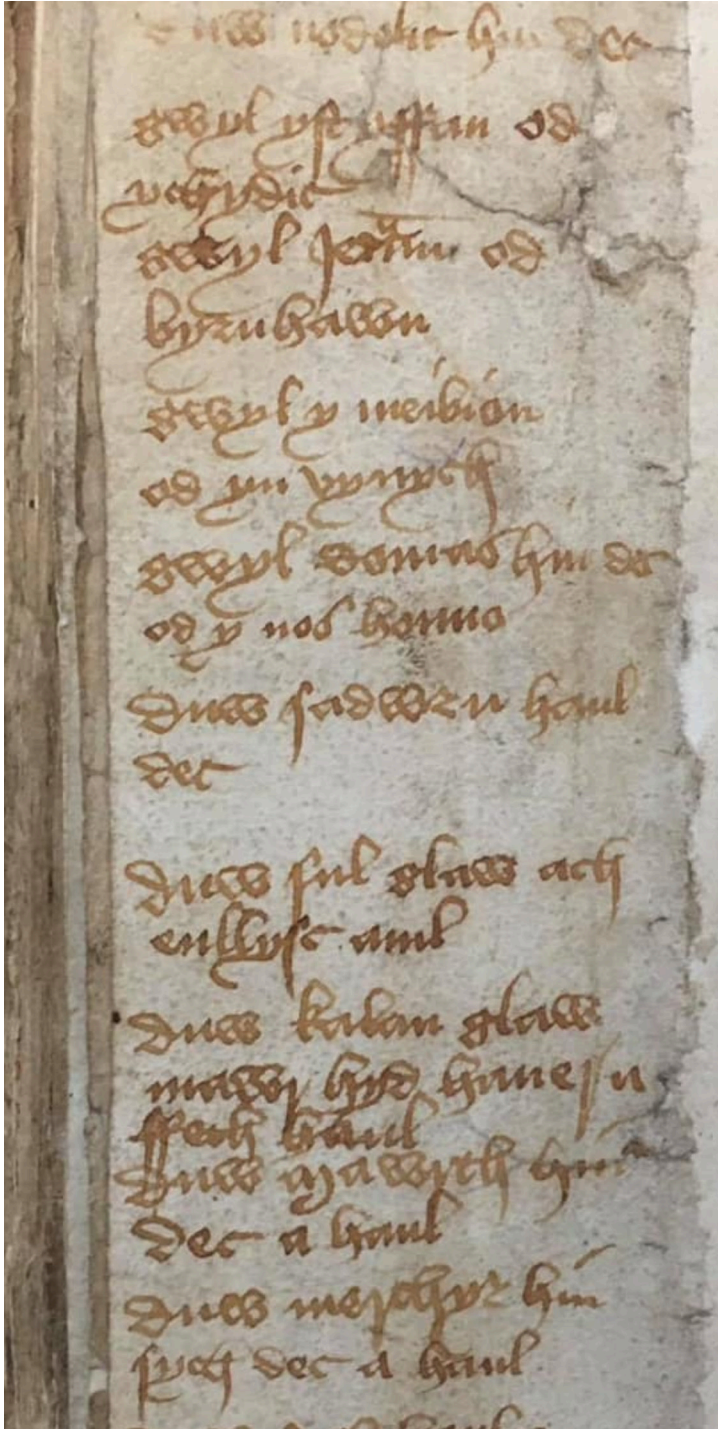 duw nodolic hin dec
gwyl ystyffan od
ychydic
gwyl Jeuan od
byrnhawn
gwyl y meibion
od yn vynych
gwyl domas hin dec
od y nos honno
duw sadwrn haul
dec
duw sul glaw ach
enllysc aml
duw kalan glaw
mawr hyd haner u
ffech haul
duw mawrth hin
dec a haul
duw merchyr hin
sych dec a haul